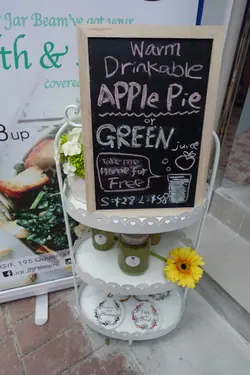 Jar Beam've got your
th &
covered
8 up
Warm
Drinkable
APPLe Pie
or
GREEN
juice
Take me
Home for
Free
S:$28 L:$58
G/F, 195 Queen